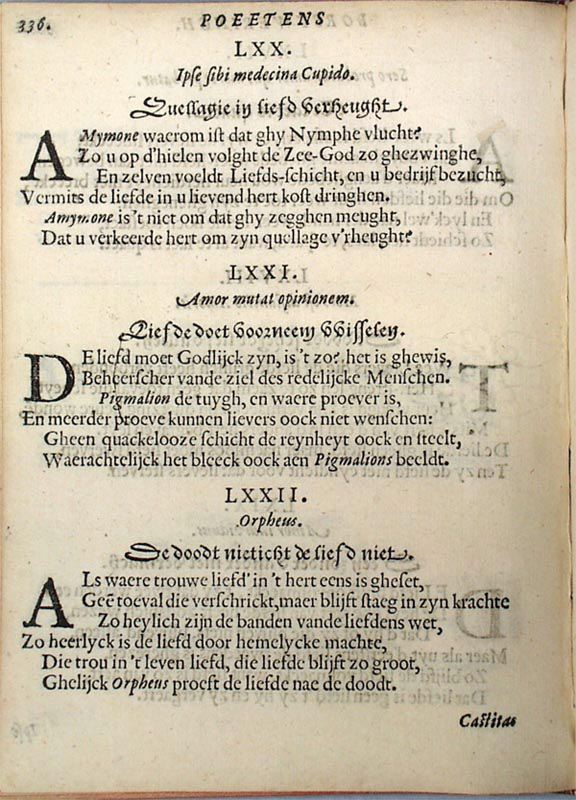 336.
POEETENS
LXX.
Ipse sibi medecina Cupido.
Quellagie in liefd verheught.
AMymone waerom ist dat ghy Nymphe vlucht?
Zo u op d'hielen volght de Zee-God zo ghezwinghe,
En zelven voeldt Liefds-schicht, en u bedrijf bezucht,
Vermits de liefde in u lievend hert kost dringhen.
Amymone is 't niet om dat ghy zegghen meught,
Dat u verkeerde hert om zyn quellage v'rheught?
LXXI.
Amor mutat opinionem.
Liefde doet voorneem wisselen.
DE liefd moet Godlijck zyn, is 't zo? het is ghewis,
Beheerscher vande ziel des redelijcke Menschen.
Pigmalion de tuygh, en waere proever is,
En meerder proeve kunnen lievers oock niet wenschen:
Gheen quackelooze schicht de reynheyt oock en steelt,
Waerachtelijck het bleeck oock aen Pigmalions beeldt.
LXXII.
Orpheus.
De doodt niet de liefd niet.
ALs waere trouwe liefd' in 't hert eens is gheset,
Geẽ toeval die verschrickt, maer blijft staeg in zyn krachte
Zo heylich zijn de banden vande liefdens wet,
Zo heerlyck is de liefd door hemelycke machte,
Die trou in 't leven liefd, die liefde blijft zo groot,
Ghelijck Orpheus proeft de liefde nae de doodt.
Castitas